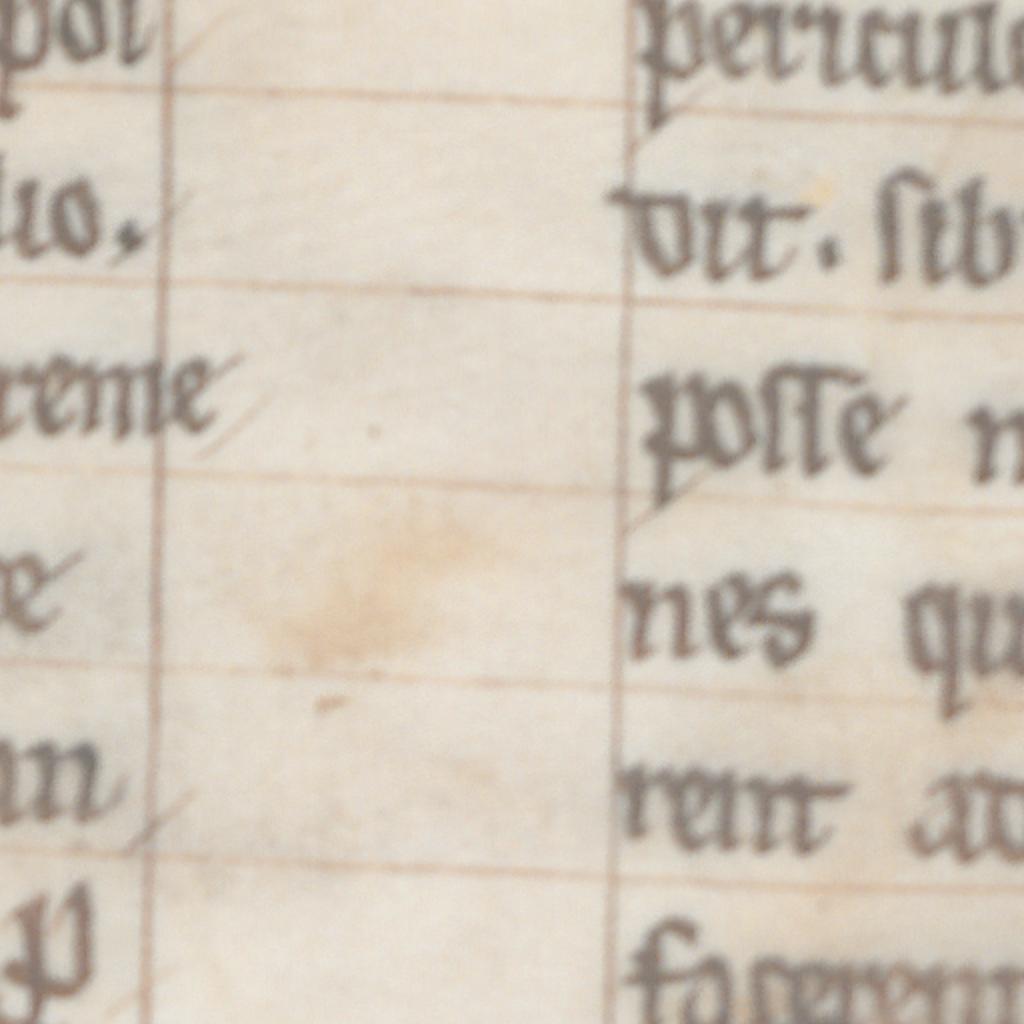 poi
lio.
reme
in
p
pericul
dit. sib
posse n
nes qu
rent ad
facerent